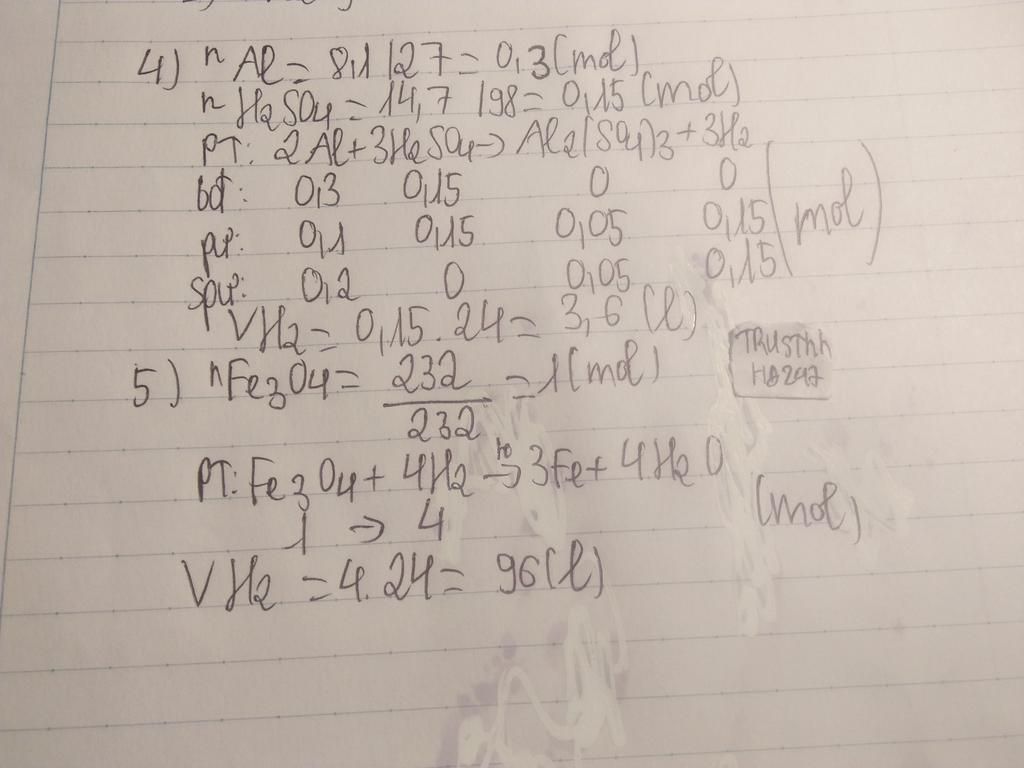 4) nAl = 8,1/27 = 0,3(mol)
nH2SO4 = 14,7/98 = 0,15(mol)
PT: 2Al+3H2SO4→Al2(SO4)3+3H2
bđ: 0,3 0,15 0 0 (mol)
pư: 0,1 0,15 0,05 0,15
spư: 0,2 0 0,05 0,15
VH2 = 0,15.24 = 3,6 (l)
TRUSThh
HB247
5) nFe3O4 = 232/232 = 1(mol)
PT: Fe3O4 + 4H2 →to 3Fe + 4H2O
1 → 4 (mol)
VH2 = 4.24 = 96(l)